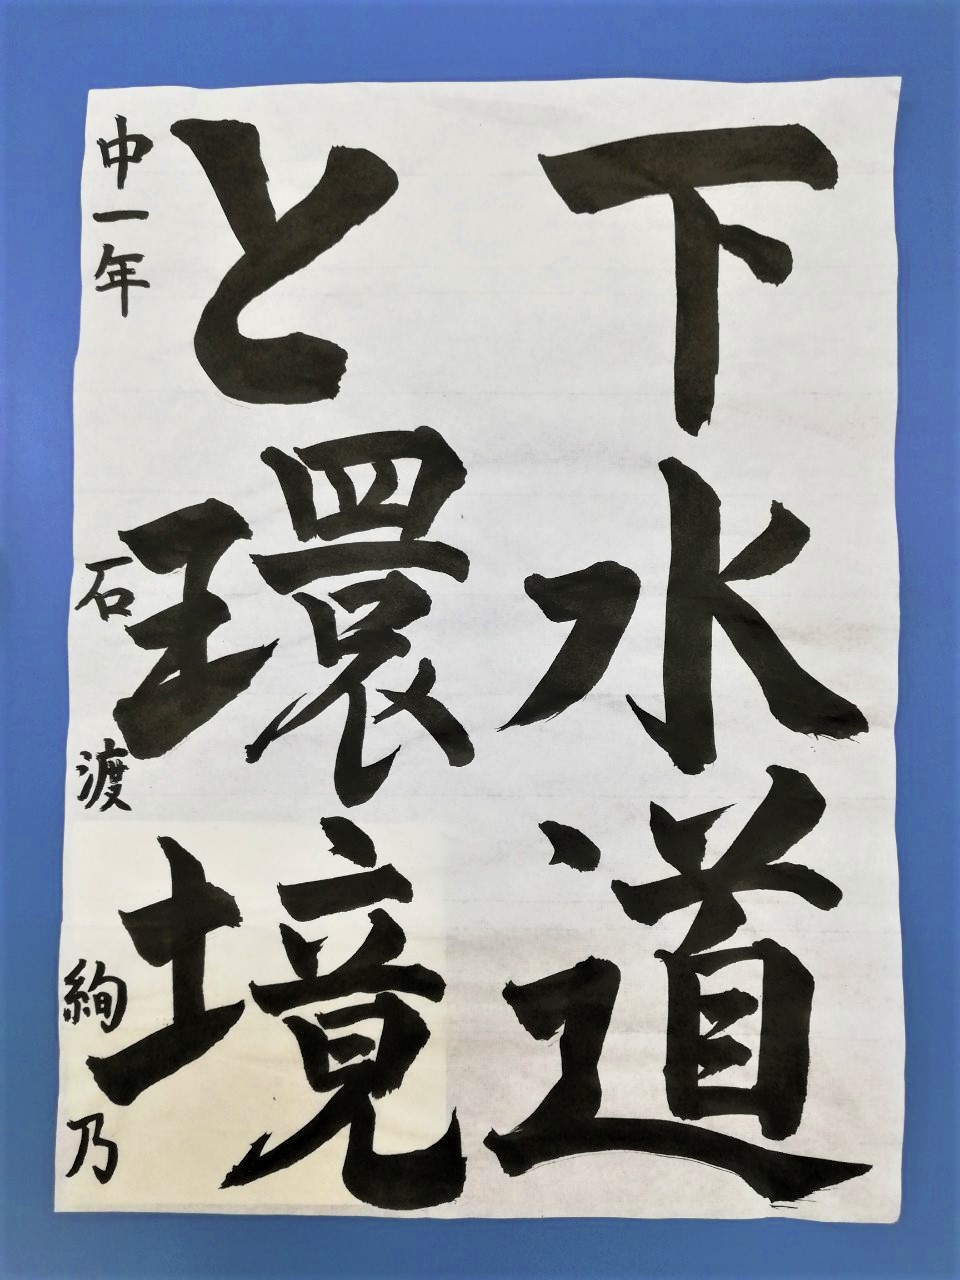 下水道
と環境
中一年 石渡絢乃